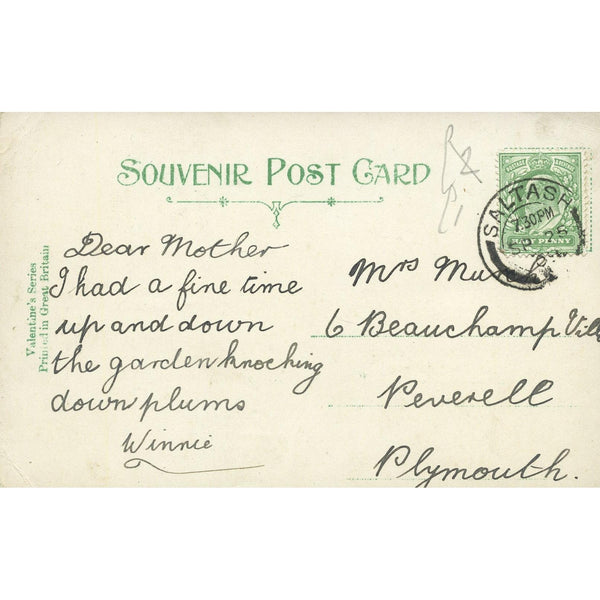 SOUVENIR POST CARD
Valentine's Series
Printed in Great Britain
Dear Mother
I had a fine time
up and down
the garden knocking
down plums
Winnie
SALTASH
7.30 PM
25
HALF PENNY
Mrs
6 Beauchamp Vill
Peverell
Plymouth.